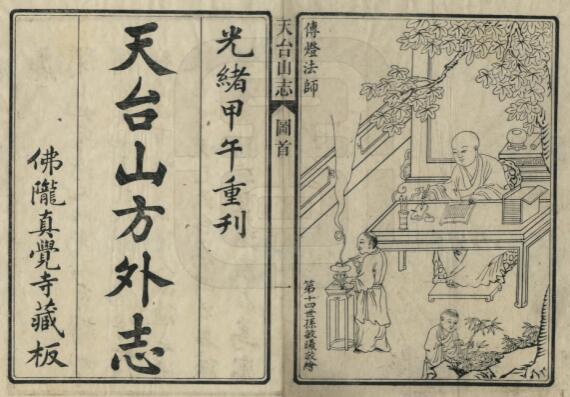 光緒甲午重刊
天台山方外志
佛隴真覺寺藏板
傳燈法師
天台山志
圖首
一
第十四世孫敏曦敬繪